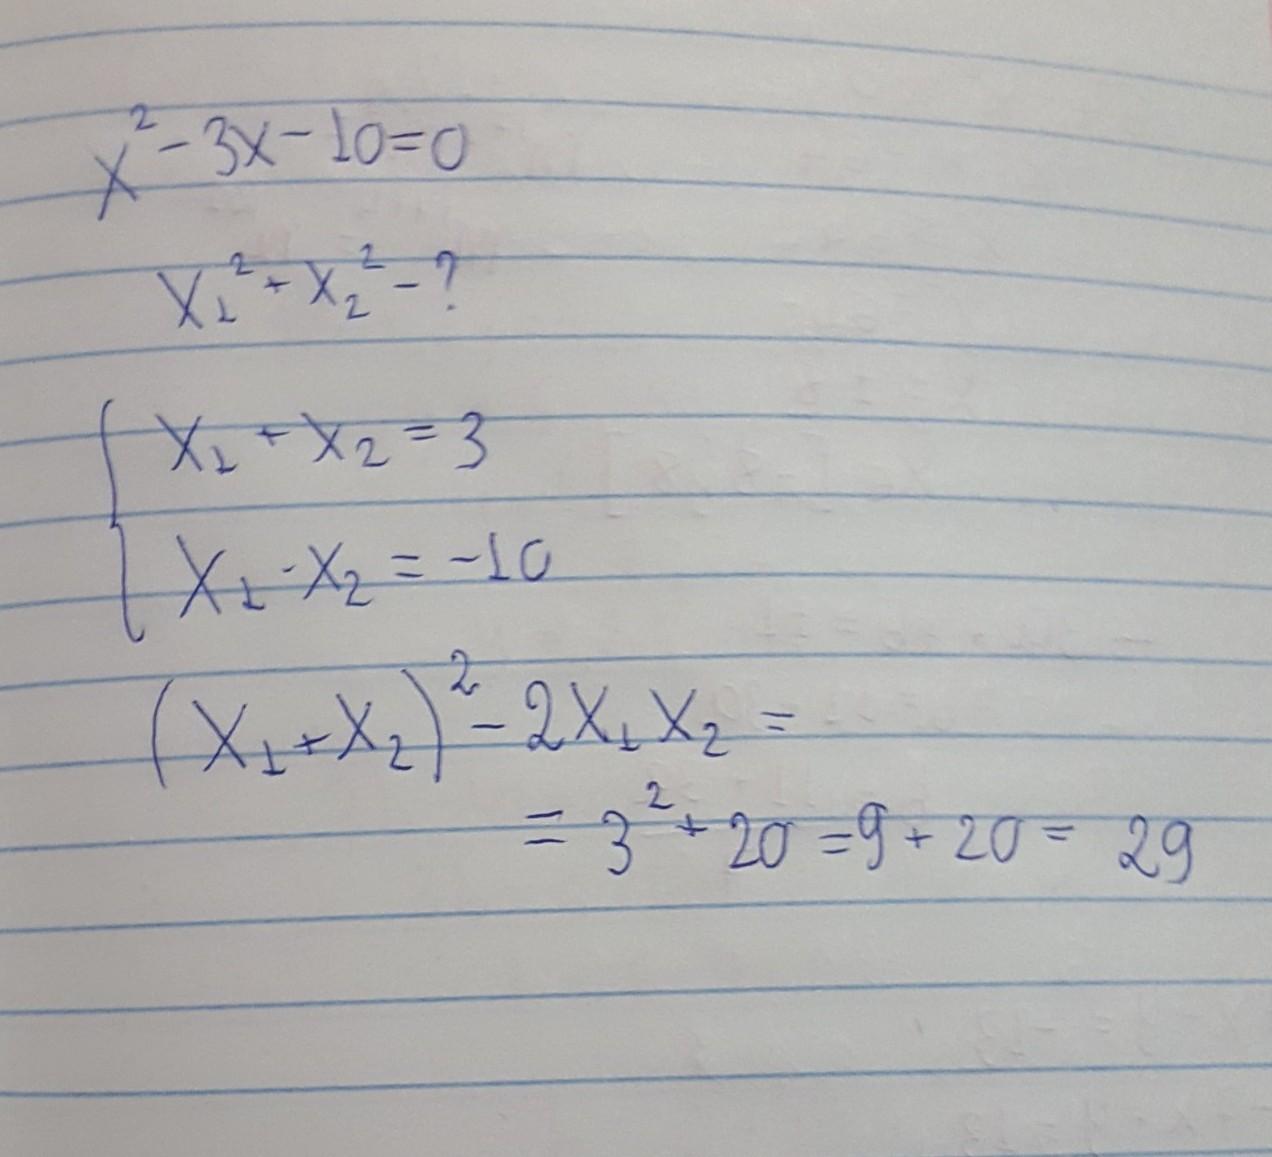 x² - 3x - 10 = 0
x₁² + x₂² - ?
{ x₁ + x₂ = 3
x₁ · x₂ = -10
(x₁ + x₂)² - 2x₁x₂ =
= 3² + 20 = 9 + 20 = 29